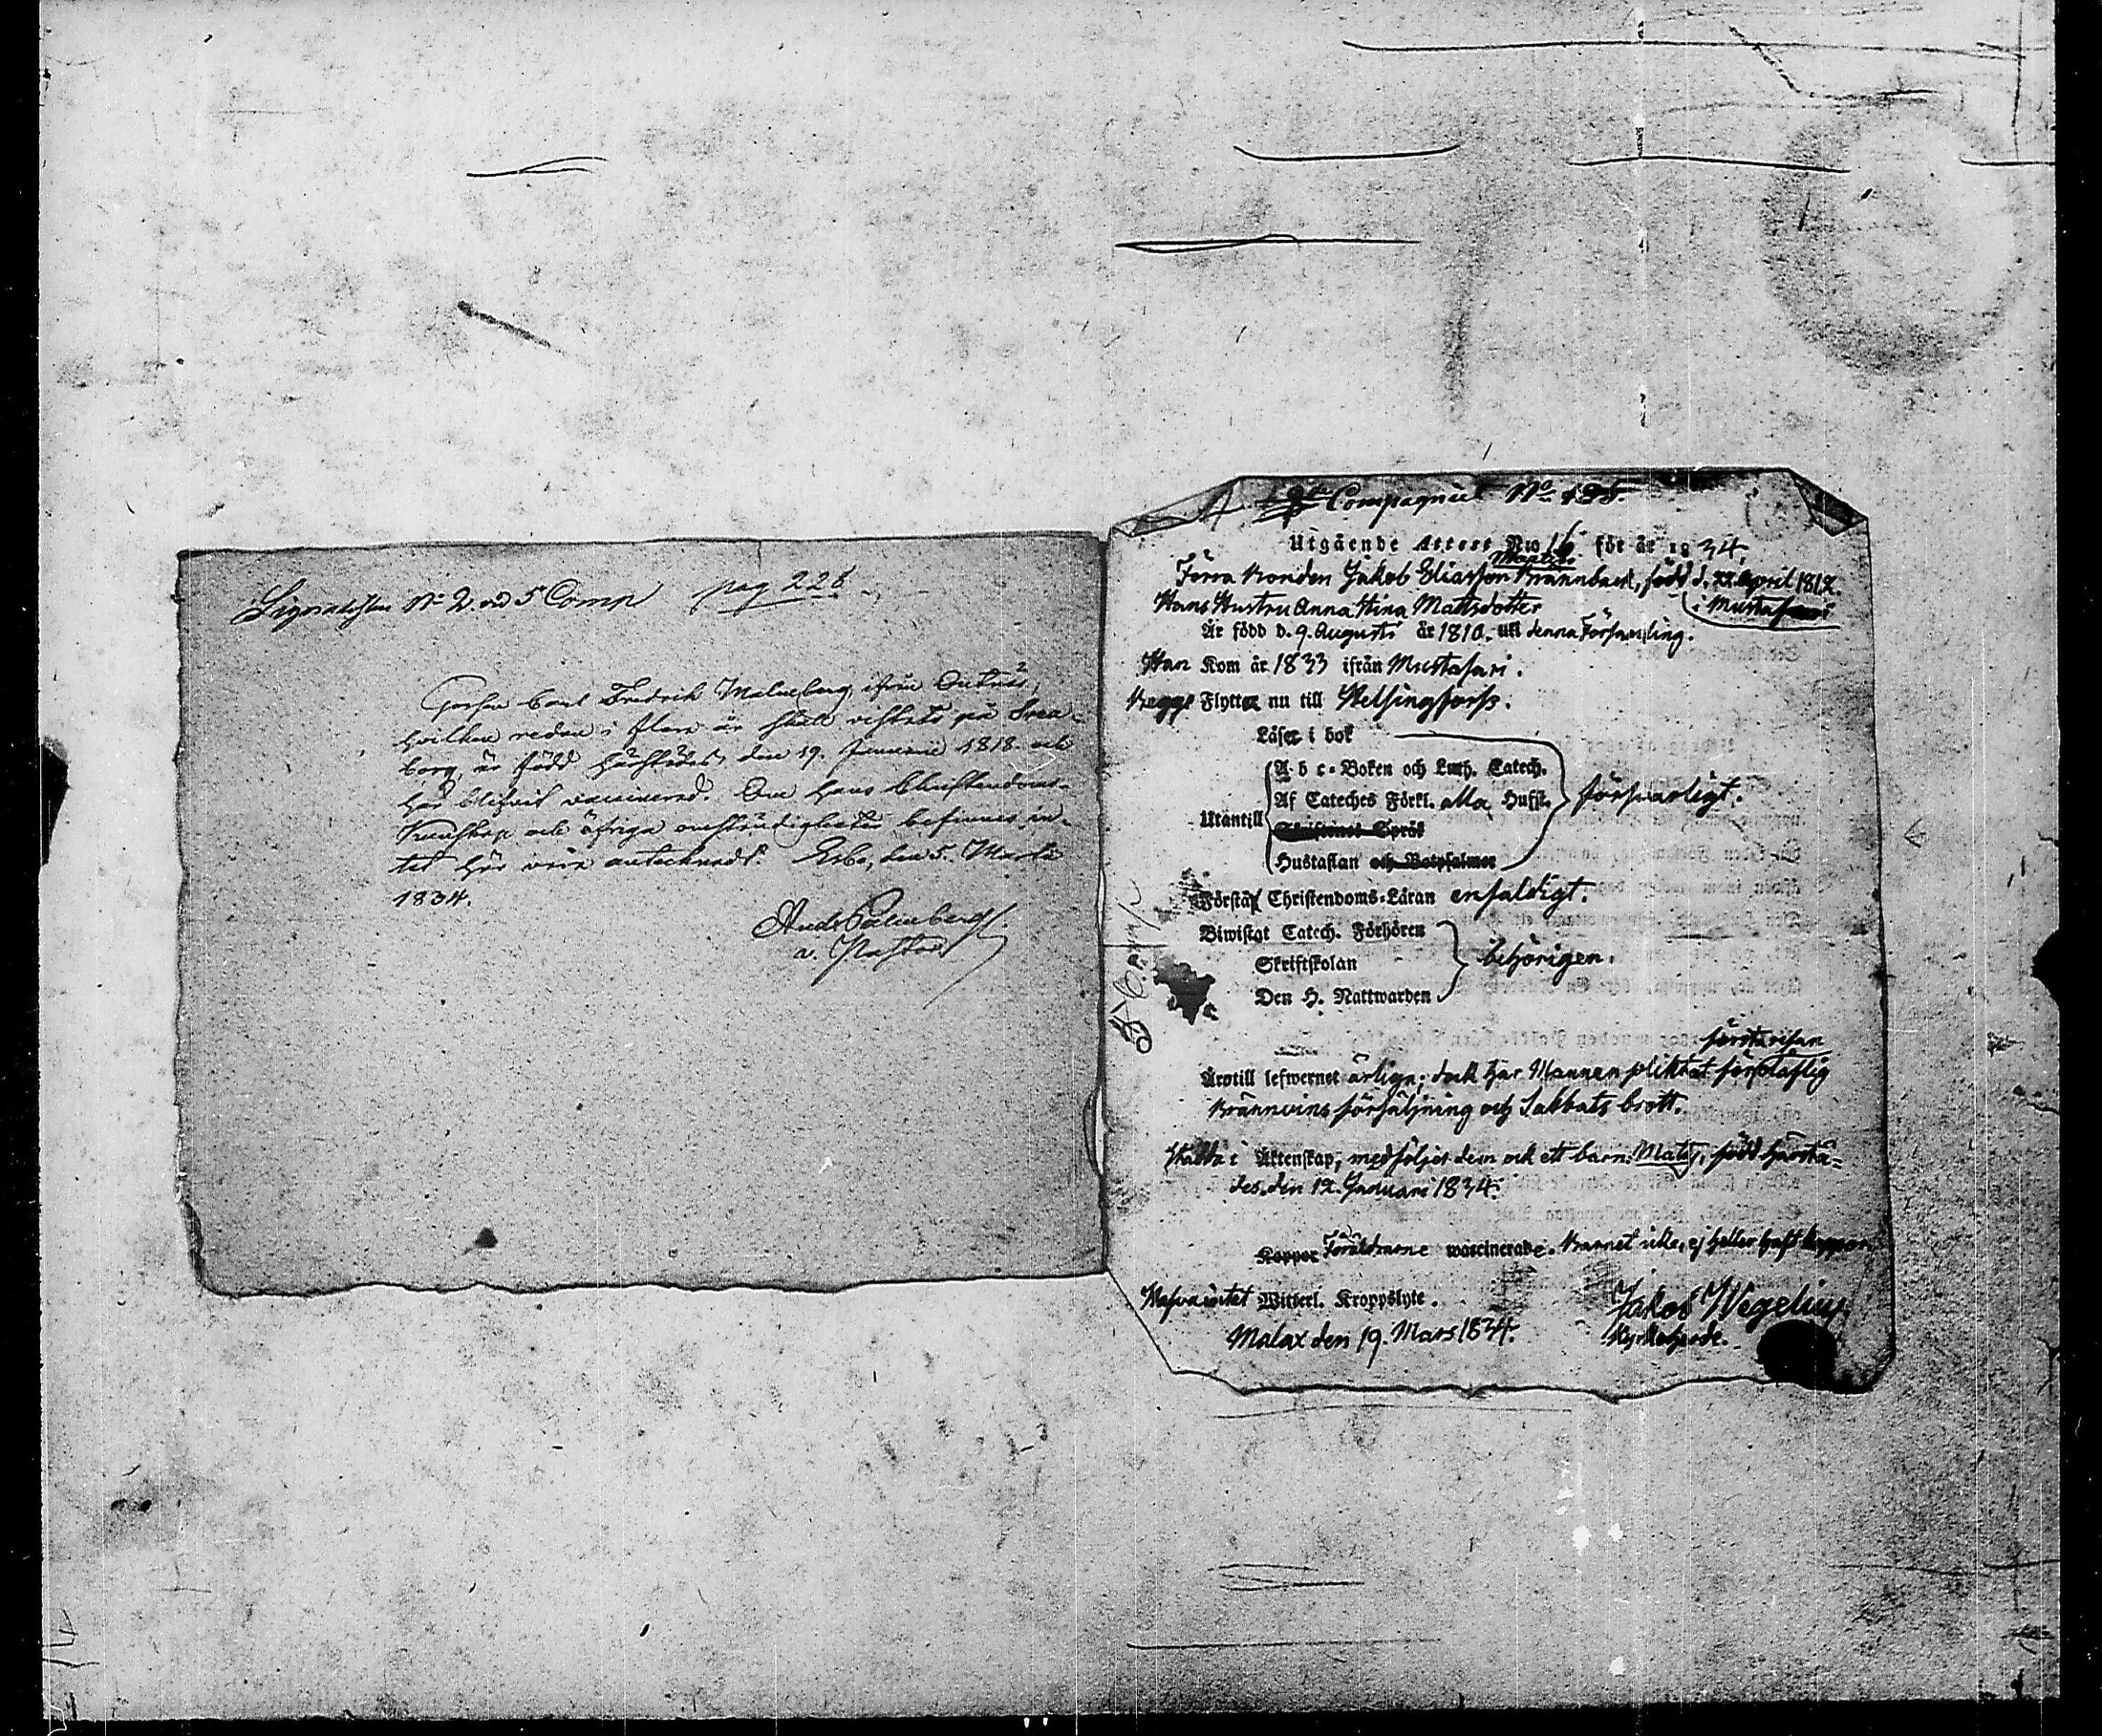 N: 2. vid 5 Comp pag 228.
Gossen Carl Fredrik Malmberg ifrån
hvilken redan i flere år skall vistats på Svea-
borg, är född härstädes den 19. Januarii 1818. och
här blifvit vaccinerad. Om hans Christendoms-
kunskap och öfriga omständigheter befinnes in-
tet här vara antecknadt. Esbo, den 5. Martii
1834.
And. Palmberg
v. Pastor
Compagniet No
Utgående Attest Nio 16 för år 1834.
Förra Bonden Jakob Eliasson Brännback, född d. 22 April 1812.
i Mustasari
Hans Hustru Anna Stina Mattsdotter
Är född d. 9. Augusti år 1810. uti denna Församling.
Han Kom år 1833 ifrån Mustasari.
Begge Flytta nu till Helsingfors.
Läser i bok
Utantill
A b c-Boken och Luth. Catech.
Af Cateches Förkl. alla Hufst.
försvarligt.
Skriftenes Språk
Hustaflan och Botpsalmer
Förstå Christendoms-Läran enfaldigt.
Biwistat Catech. Förhören
Skriftskolan
behörigen.
Den H. Nattwarden
första resan
Äro till lefwernet ärliga; dock har Mannen pliktat för olaflig
Bränvins försäljning och Sabbats brott.
Stadda i Äktenskap, medföljer dem ock ett barn: Mats, född härstä-
des den 12. Januari 1834.
Koppor Föräldrarne waccinerade. Barnet icke, ej heller haft koppor.
Hafva intet Witterl. Kroppslyte.
Malax den 19. Mars 1834.
Jakob Wegelius
Kyrkoherde.